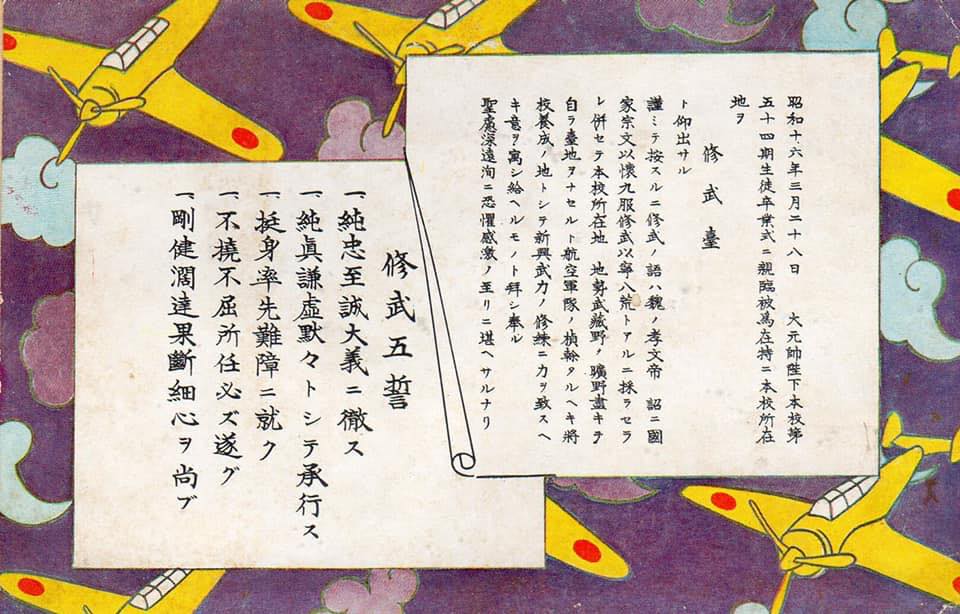 昭和十六年三月二十八日　大元帥陛下本校第
五十四期生徒卒業式ニ親臨被爲在特ニ本校所在
地ヲ
修武臺
ト仰出サル
謹ミテ按スルニ修武ノ語ハ魏ノ孝文帝　詔ニ國
家宗文以懷九服修武以寧八荒トアルニ採ラセラ
レ併セテ本校所在地　地勢武藏野ノ曠野盡キテ
自ラ臺地ヲナセルト航空軍隊ノ楨幹タルヘキ將
校養成ノ地トシテ新興武力ノ修練ニ力ヲ致スヘ
キ意ヲ寓シ給ヘルモノト拜シ奉ル
聖慮深遠洵ニ恐懼感激ノ至リニ堪ヘサルナリ
修武五誓
一、純忠至誠大義ニ徹ス
一、純眞謙虛默々トシテ承行ス
一、挺身率先難障ニ就ク
一、不撓不屈所任必ズ遂グ
一、剛健濶達果斷細心ヲ尚ブ